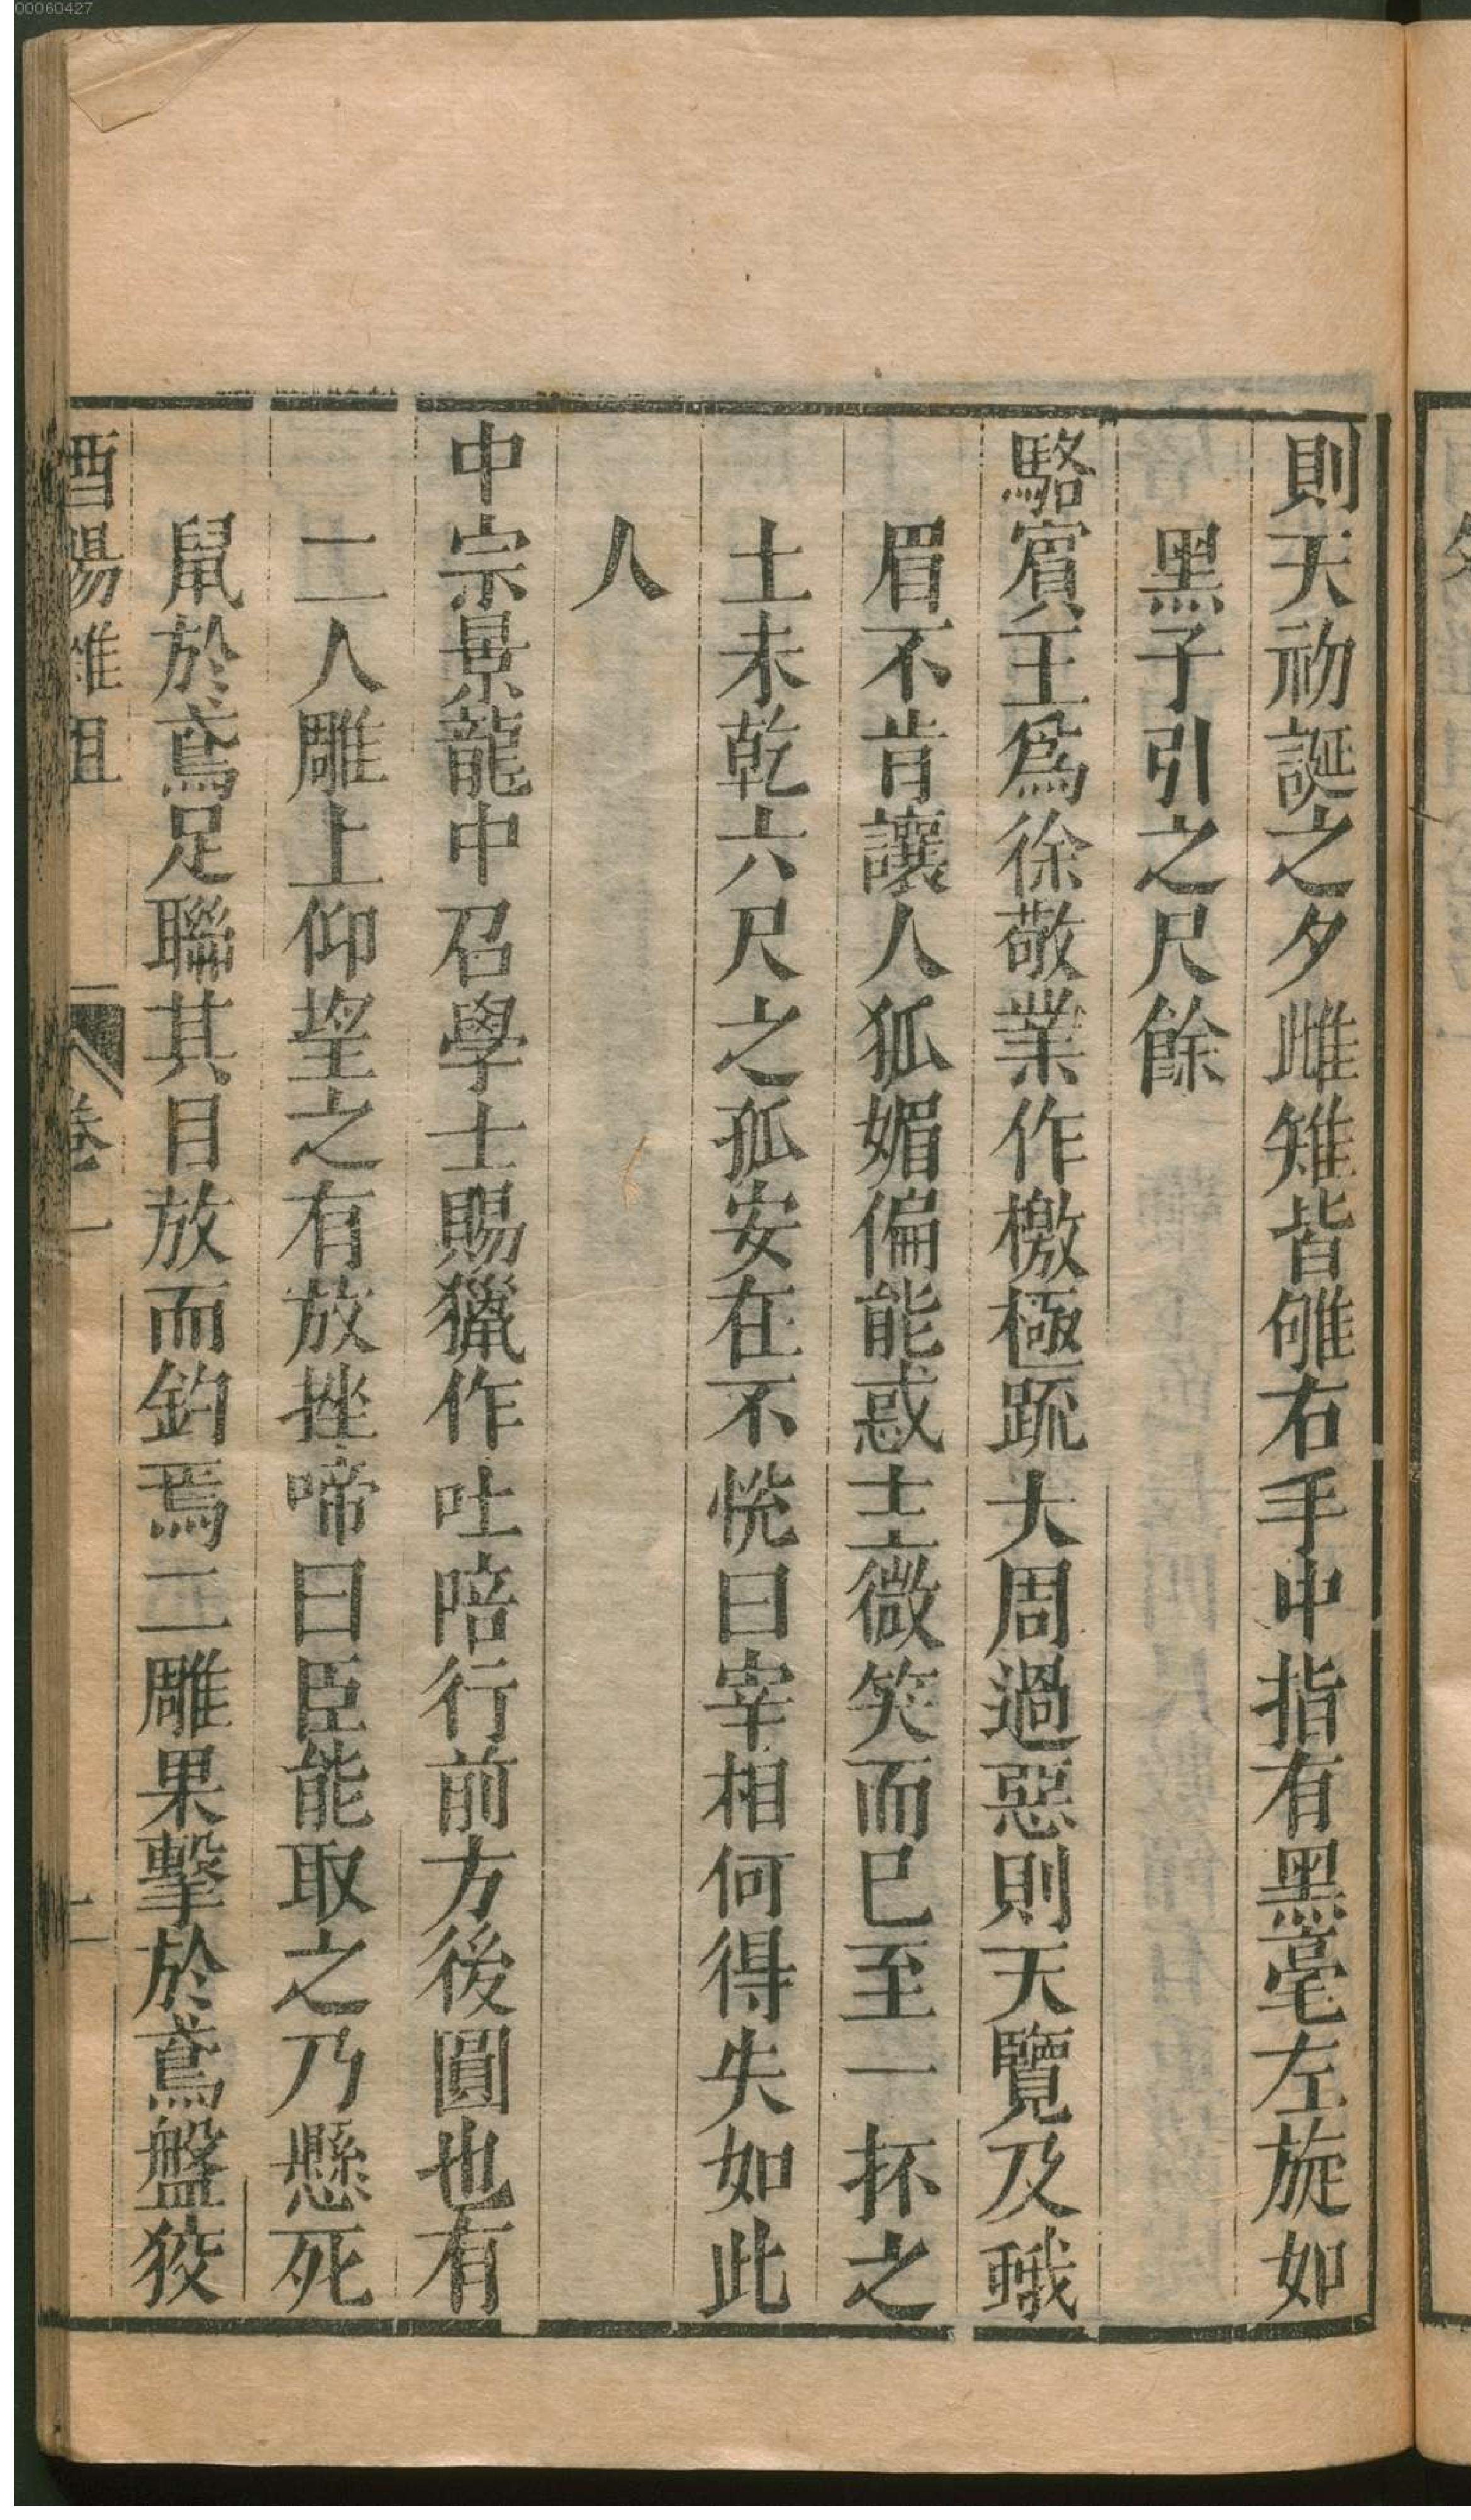 00060427
則天初誕之夕雌雉皆雊右手中指有黑毫左旋如
黑子引之尺餘
駱賓王爲徐敬業作檄極疏大周過惡則天覽及蛾
眉不肯讓人狐媚偏能惑主微笑而巳至一抔之
土未乾六尺之孤安在不悅曰宰相何得失如此
人
中宗景龍中召學士賜獵作吐陪行前方後圓也有
二人雕上仰望之有放挫啼曰臣能取之乃懸死
鼠於鳶足聯其目放而釣焉二雕果擊於鳶盤狡
酉陽雜俎 卷一 二